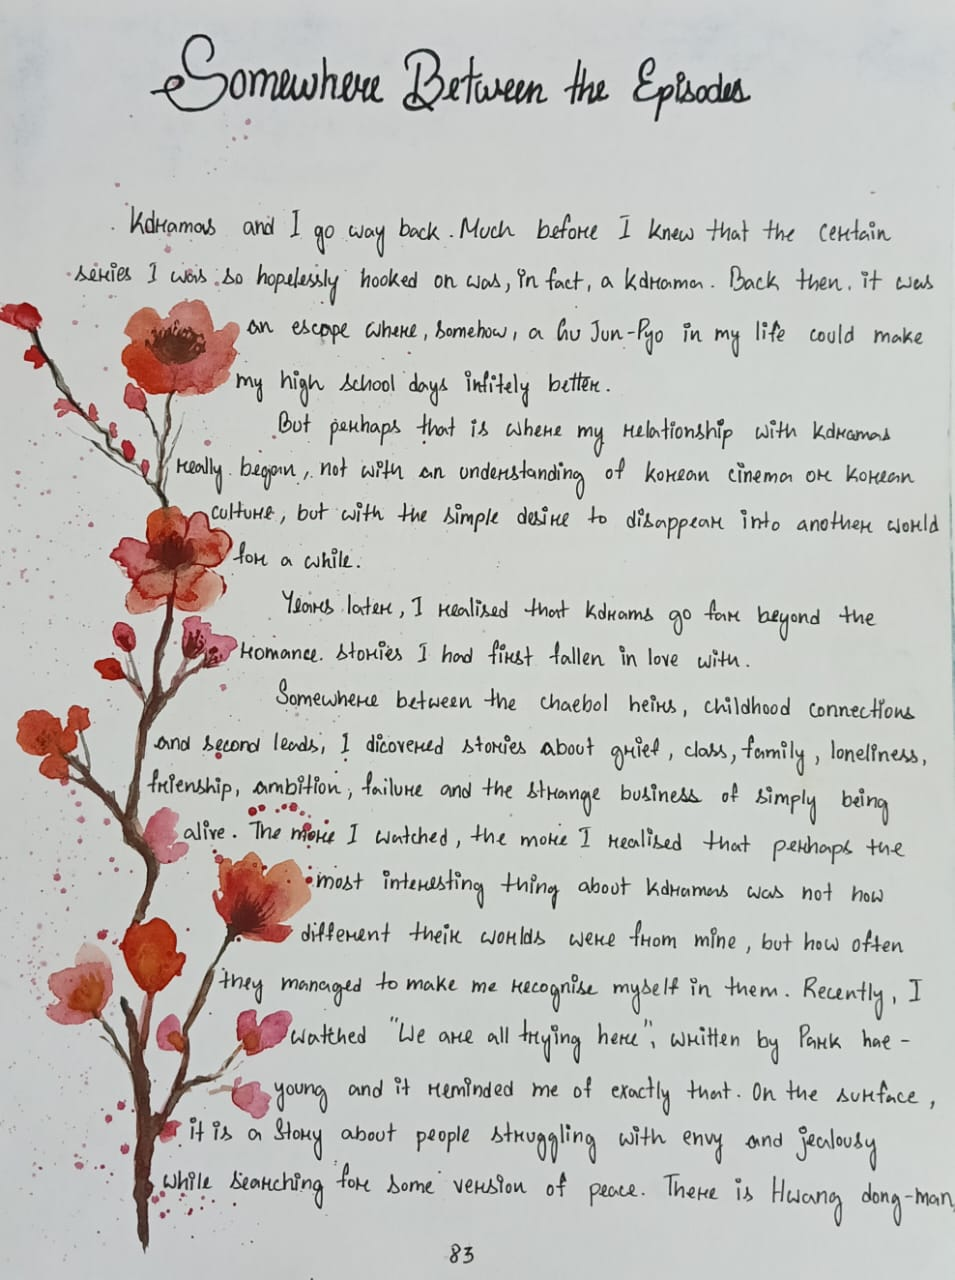 Somewhere Between the Episodes
Kdramas and I go way back. Much before I knew that the certain
series I was so hopelessly hooked on was, in fact, a kdrama. Back then, it was
an escape where, somehow, a Gu Jun-Pyo in my life could make
my high school days infitely better.
But perhaps that is where my relationship with kdramas
really began, not with an understanding of korean cinema or korean
culture, but with the simple desire to disappear into another world
for a while.
Years later, I realised that kdrams go far beyond the
romance. stories I had first fallen in love with.
Somewhere between the chaebol heirs, childhood connections
and second leads, I dicovered stories about grief, class, family, loneliness,
frienship, ambition, failure and the strange business of simply being
alive. The more I watched, the more I realised that perhaps the
most interesting thing about kdramas was not how
different their worlds were from mine, but how often
they managed to make me recognise myself in them. Recently, I
watched "We are all trying here", written by Park hae-
young and it reminded me of exactly that. On the surface,
it is a story about people struggling with envy and jealousy
while searching for some version of peace. There is Hwang dong-man,
83